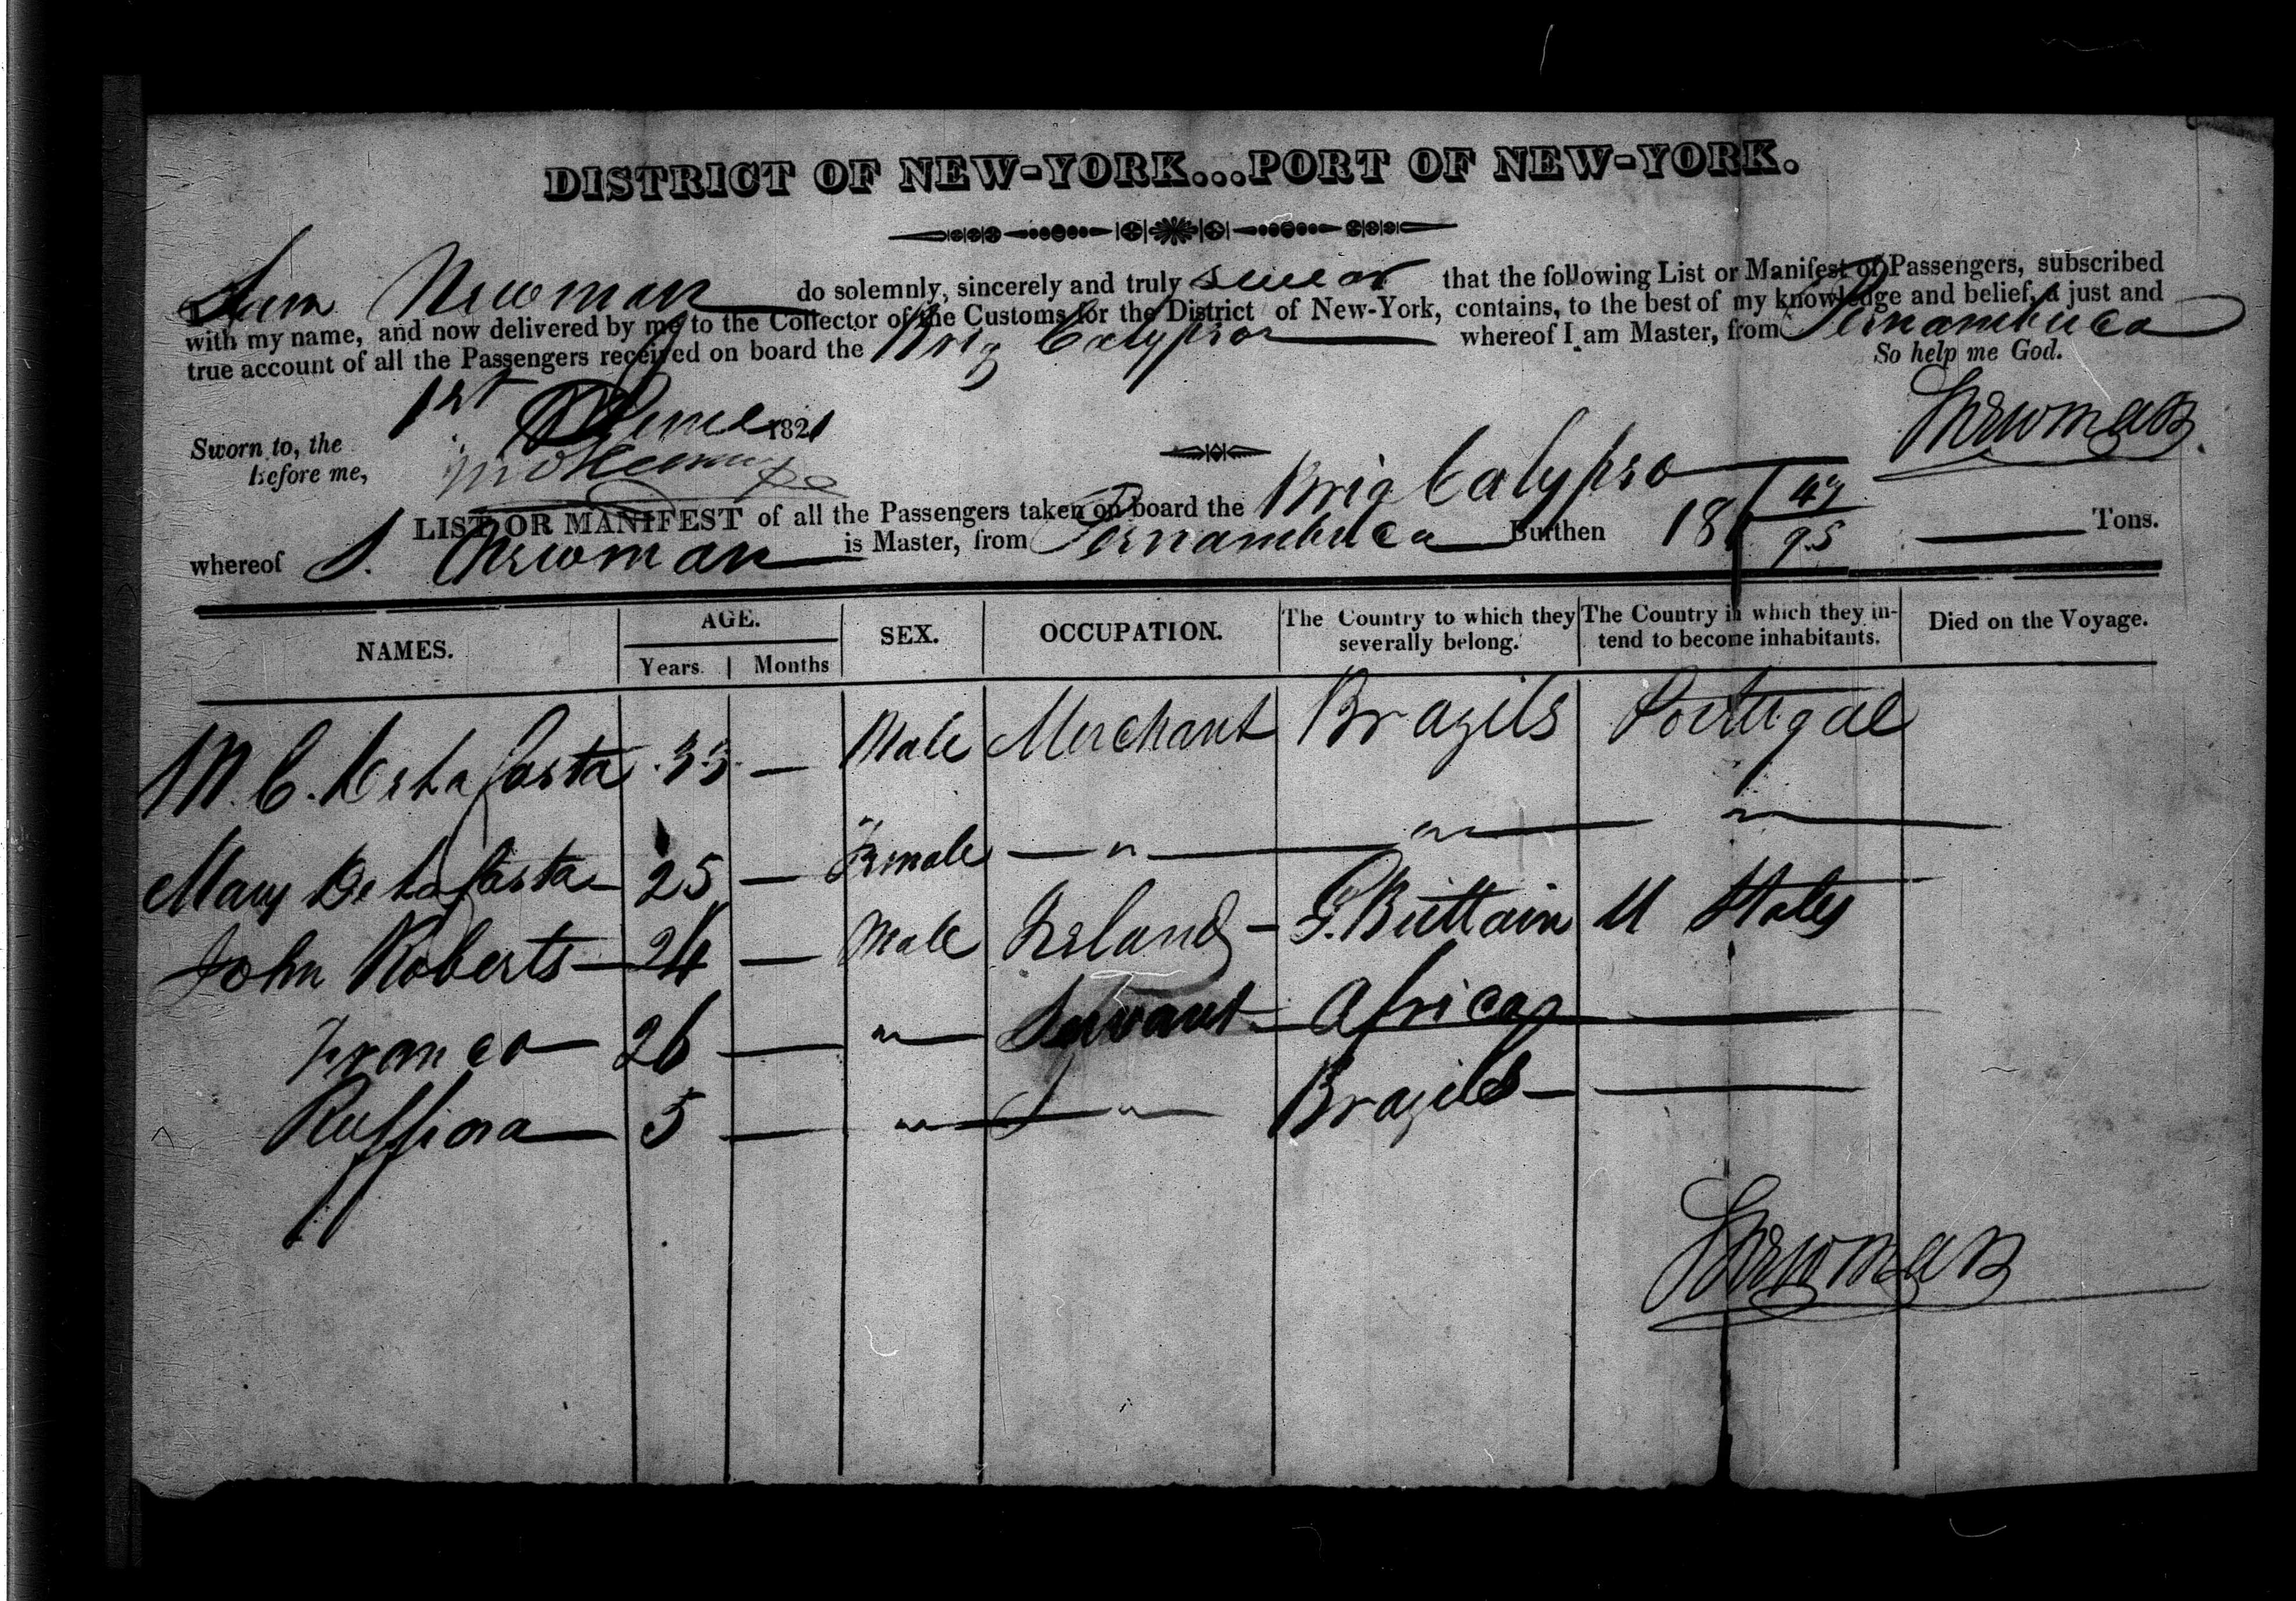 DISTRICT OF NEW-YORK...PORT OF NEW-YORK.
I, Sam Newman do solemnly, sincerely and truly swear that the following List or Manifest of Passengers, subscribed
with my name, and now delivered by me to the Collector of the Customs for the District of New-York, contains, to the best of my knowledge and belief, a just and
true account of all the Passengers received on board the Brig Calypso whereof I am Master, from Pernambuca
So help me God.
Sworn to, the 1st June 1821
before me,
S Newman
LIST OR MANIFEST of all the Passengers taken on board the Brig Calypso
whereof S. Newman is Master, from Pernambuca Burthen 181 47/95 Tons.
NAMES. AGE. Years. Months SEX. OCCUPATION. The Country to which they severally belong. The Country in which they intend to become inhabitants. Died on the Voyage.
M. C. De La Costa 33 — Male Merchant Brazils Portugal
Mary De La Costa 25 — Female — " — " — " —
John Roberts 24 — Male Ireland - G. Brittain U States
Franco 26 — " — Servant - Africa —
Ruffina 5 — " — " — Brazils —
S Newman